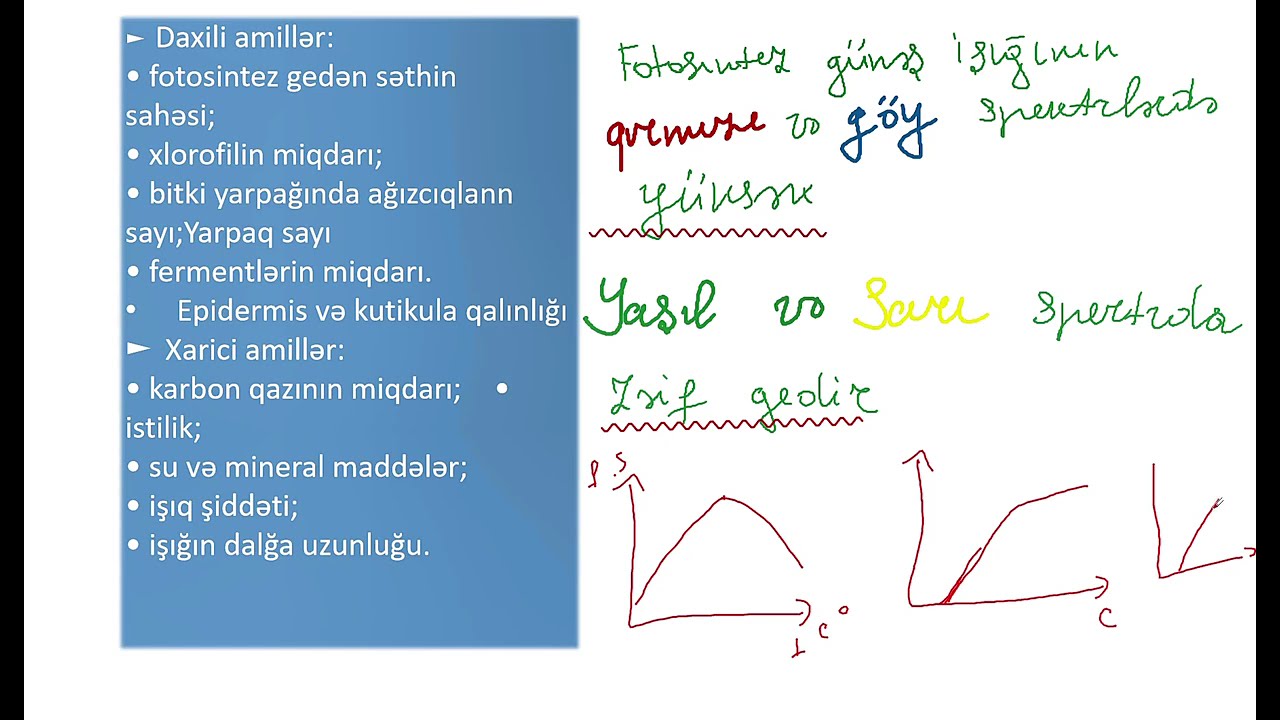 ► Daxili amillər:
• fotosintez gedən səthin
sahəsi;
• xlorofilin miqdarı;
• bitki yarpağında ağızcıqlann
sayı;Yarpaq sayı
• fermentlərin miqdarı.
• Epidermis və kutikula qalınlığı
► Xarici amillər:
• karbon qazının miqdarı; •
istilik;
• su və mineral maddələr;
• işıq şiddəti;
• işığın dalğa uzunluğu.
Fotosintez günəş işığının
qırmızı və göy spektrlərində
yüksək
Yaşıl və Sarı spektrdə
Zəif gedir
f.S
t c°
C